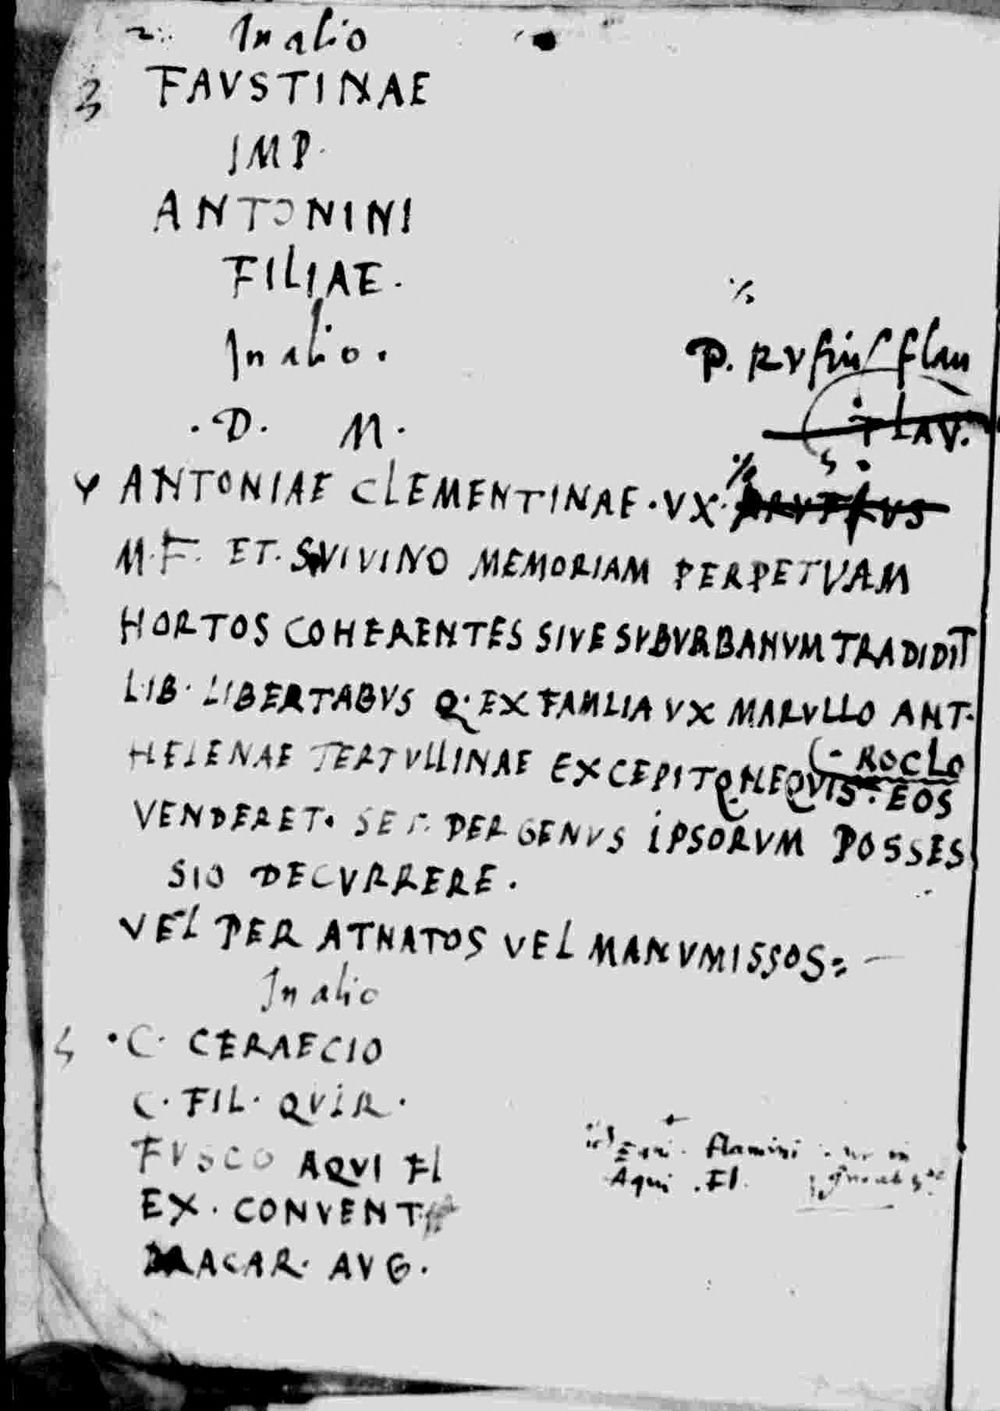 In alio
3 FAVSTINAE
IMP.
ANTONINI
FILIAE.
In alio.
P. Rufius Flau
.D. M.
FLAV.
ANTONIAE CLEMENTINAE . VX.
M. F. ET. SVIVINO MEMORIAM PERPETVAM
HORTOS COHERENTES SIVE SVBVRBANVM TRADIDIT
LIB. LIBERTABVS Q. EX FAMLIA VX MARVLLO ANT.
HELENAE TERTVLLINAE EXCEPIT Q. NEQVIS. EOS
C. ROCLO
VENDERET. SET. PER GENVS IPSORVM POSSES
SIO DECVRRERE.
VEL PER ATNATOS VEL MANVMISSOS
In alio
.C. CERAECIO
C. FIL. QVIR.
FVSCO AQVI Fl
EX. CONVENT
MACAR. AVG.
flamini
Aqui . Fl.